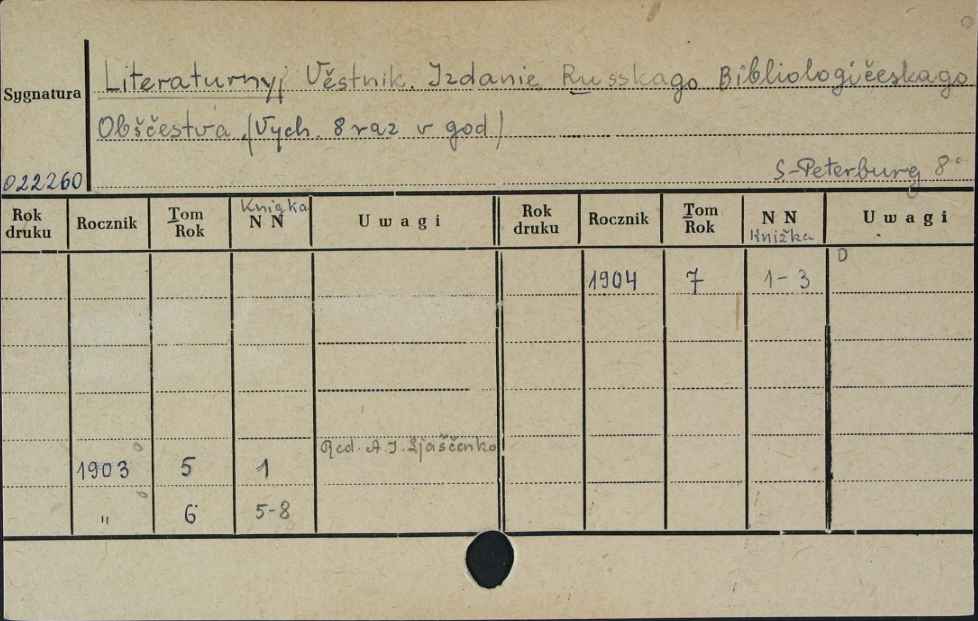 Literaturnyj Věstnik. Izdanie Russkago Bibliologičeskago
Sygnatura
Obščestva (Vych. 8 raz v god)
022260
S-Peterburg 8°
Rok druku Rocznik Tom Rok Knižka N N Uwagi Rok druku Rocznik Tom Rok N N Knižka Uwagi
1904 7 1-3
Red. A. I. Ljaščenko
1903 5 1
" 6 5-8